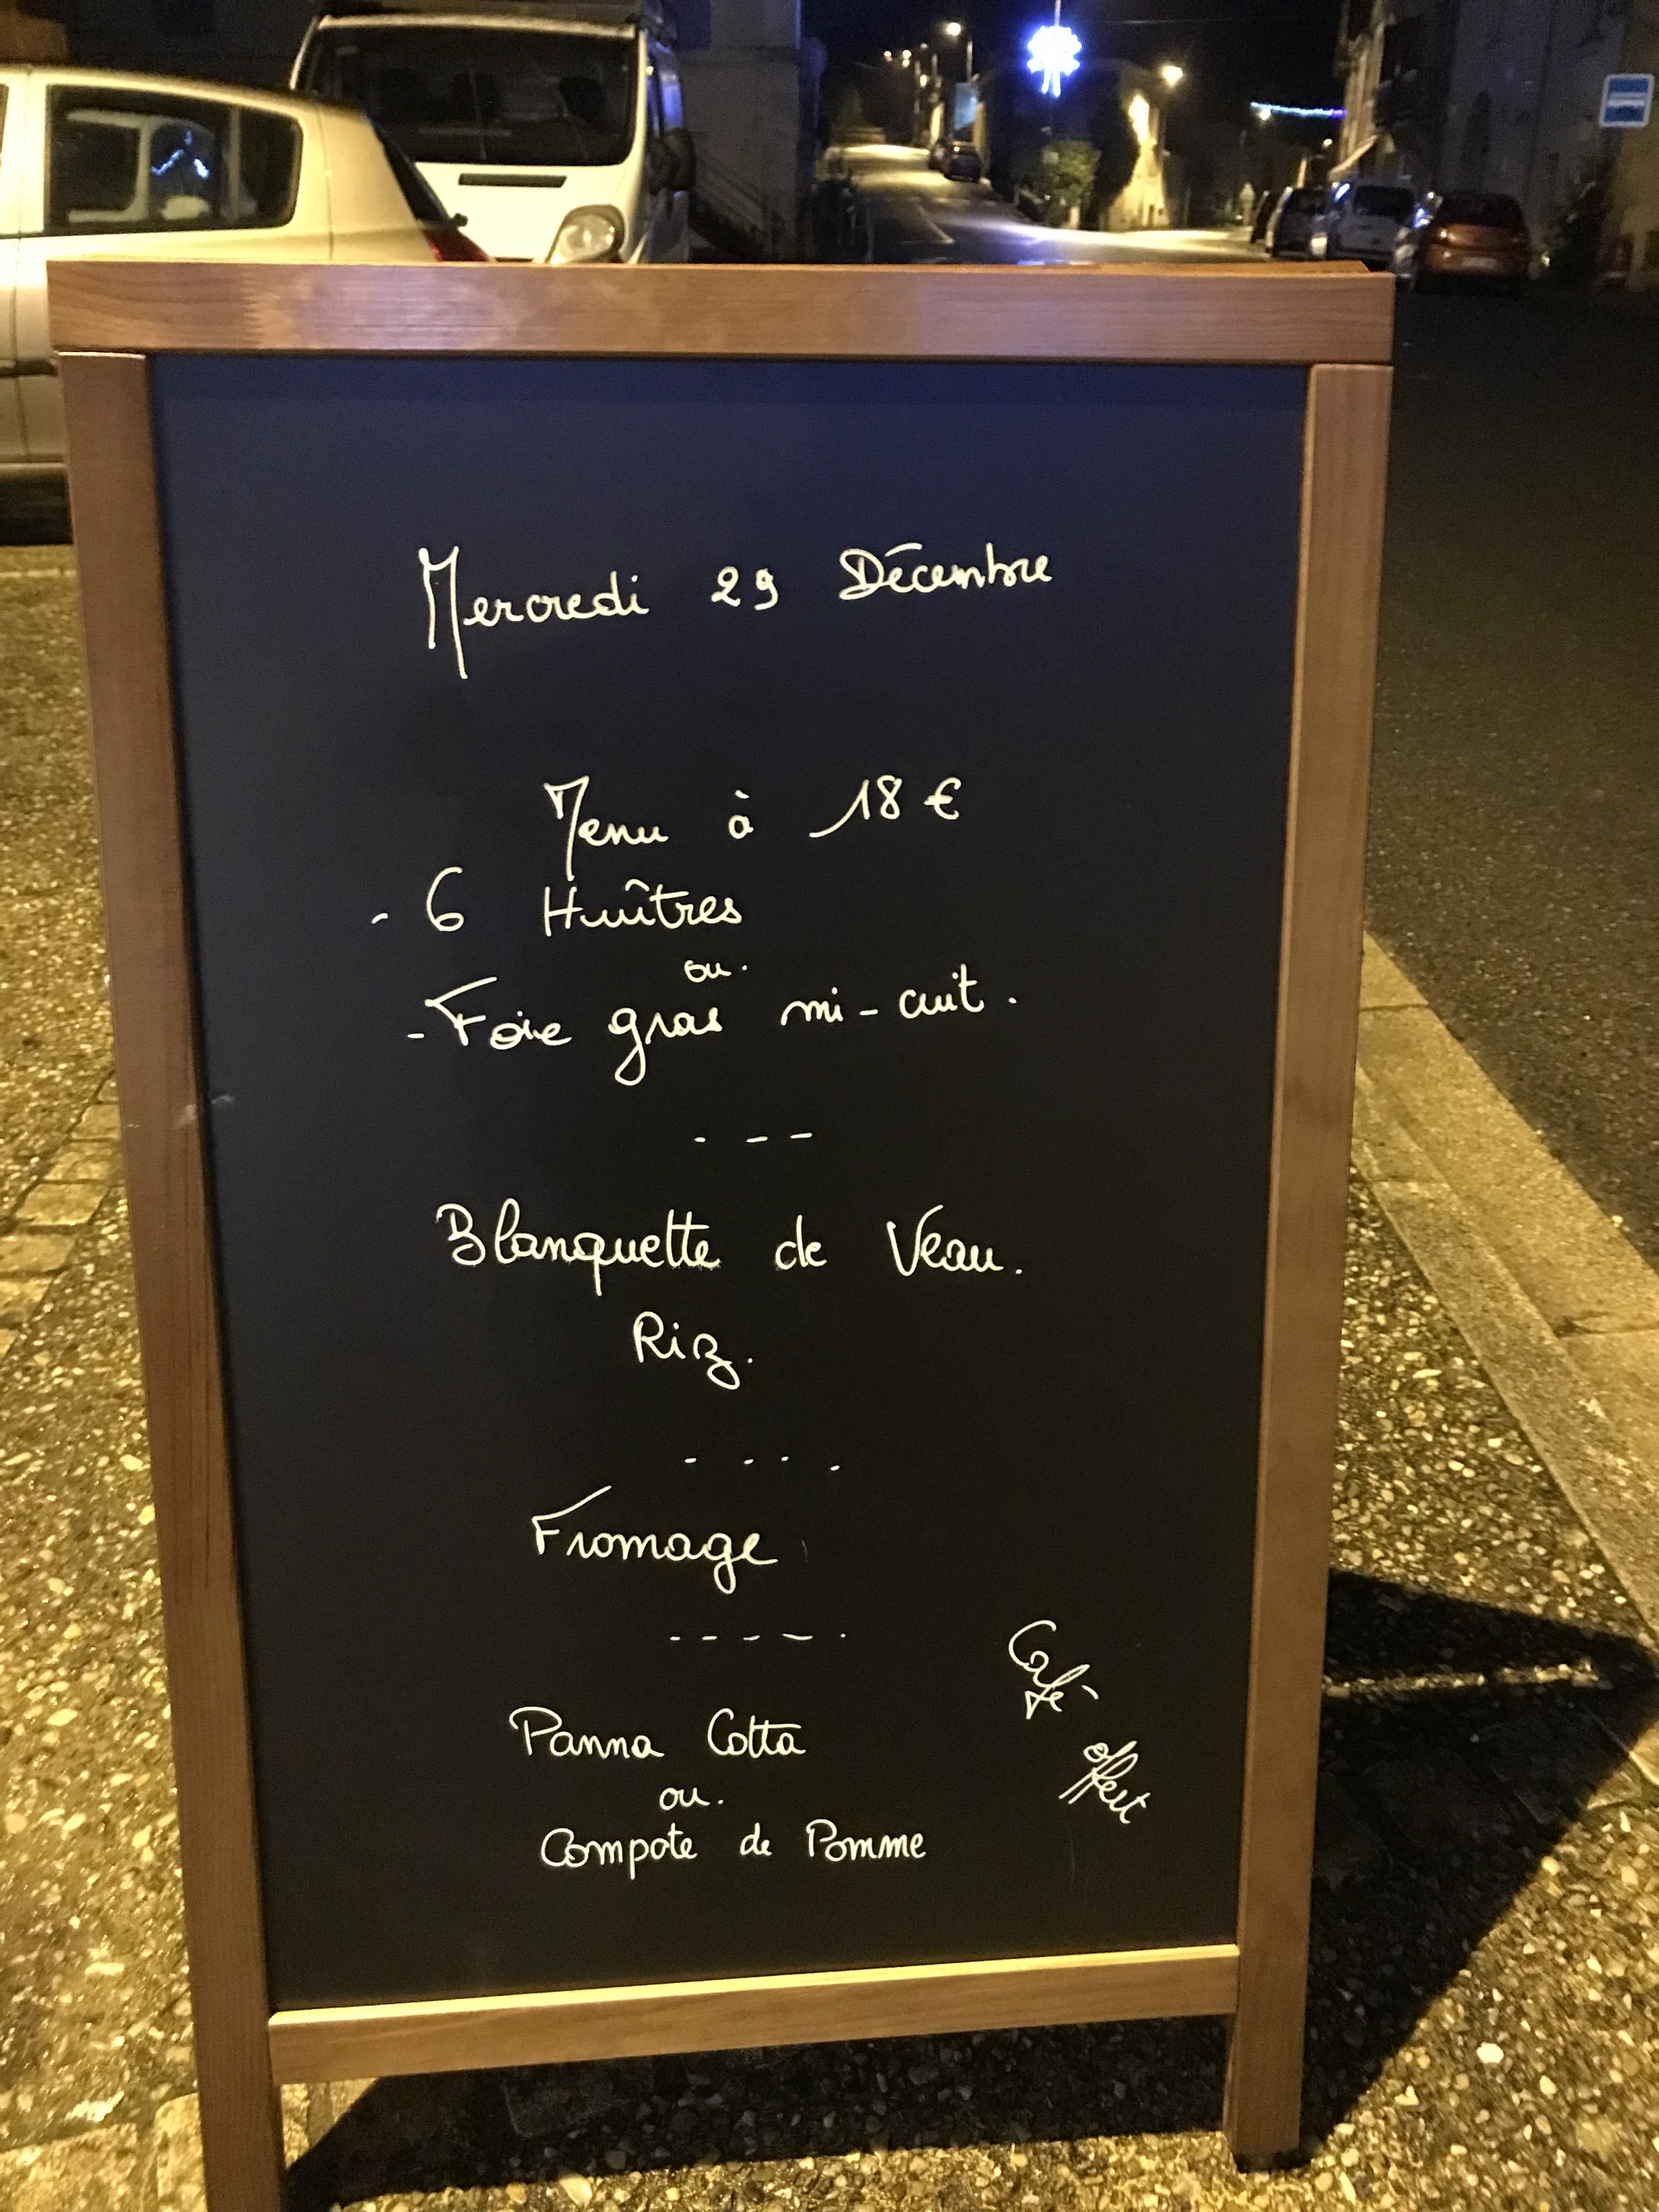 Mercredi 29 Décembre
Menu à 18 €
- 6 Huîtres
ou.
- Foie gras mi-cuit.
- - -
Blanquette de Veau.
Riz.
- - - -
Fromage
- - - - -
Panna Cotta
ou.
Compote de Pomme
Café
offert